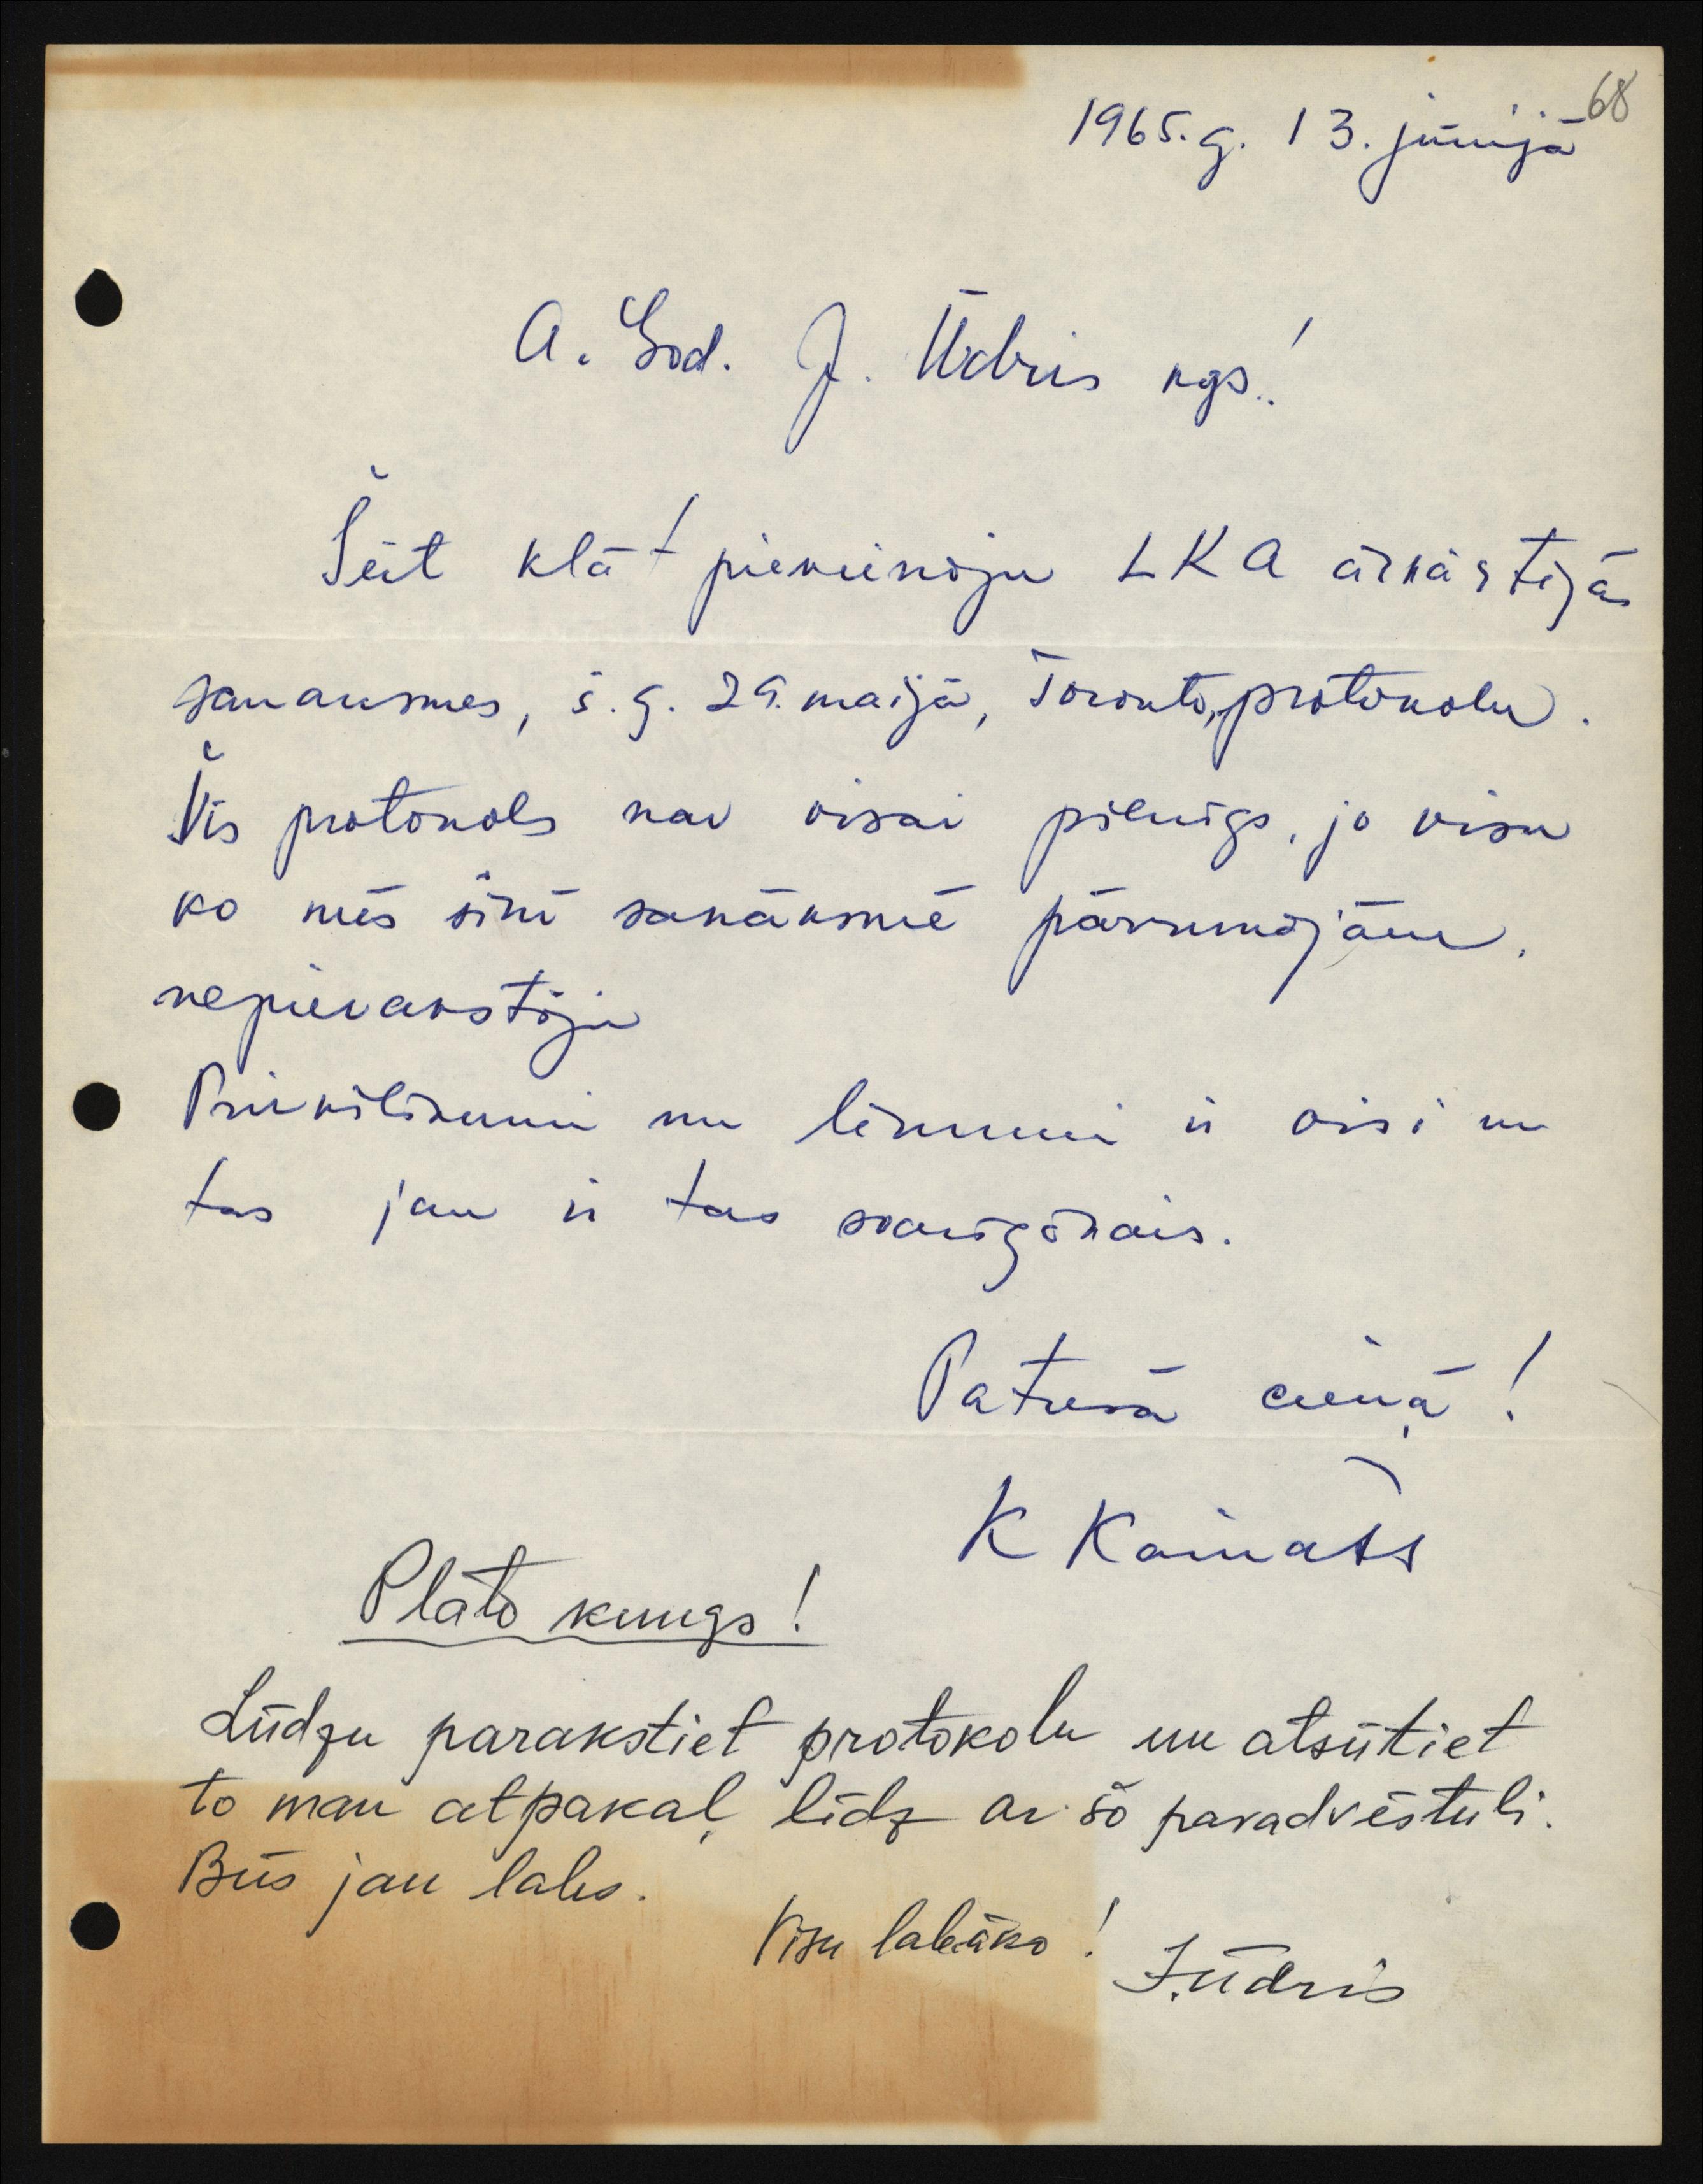 68
1965. g. 13. jūnijā
A. God. J. Ūdris kgs!
Šeit klāt pievienoju LKA ārkārtējās
sanāksmes, š.g. 29. maijā, Toronto, protokolu.
Šis protokols nav visai pilnīgs, jo visu
ko mēs šinī sanāksmē pārrunājām,
nepierakstīju
Priekšlikumi un lēmumi ir visi un
tas jau ir tas svarīgākais.
Patiesā cieņā!
K
Plāto kungs!
Lūdzu parakstiet protokolu un atsūtiet
to man atpakaļ līdz ar šo pavadvēstuli.
Būs jau labs.
Visu labāko! J. Ūdris